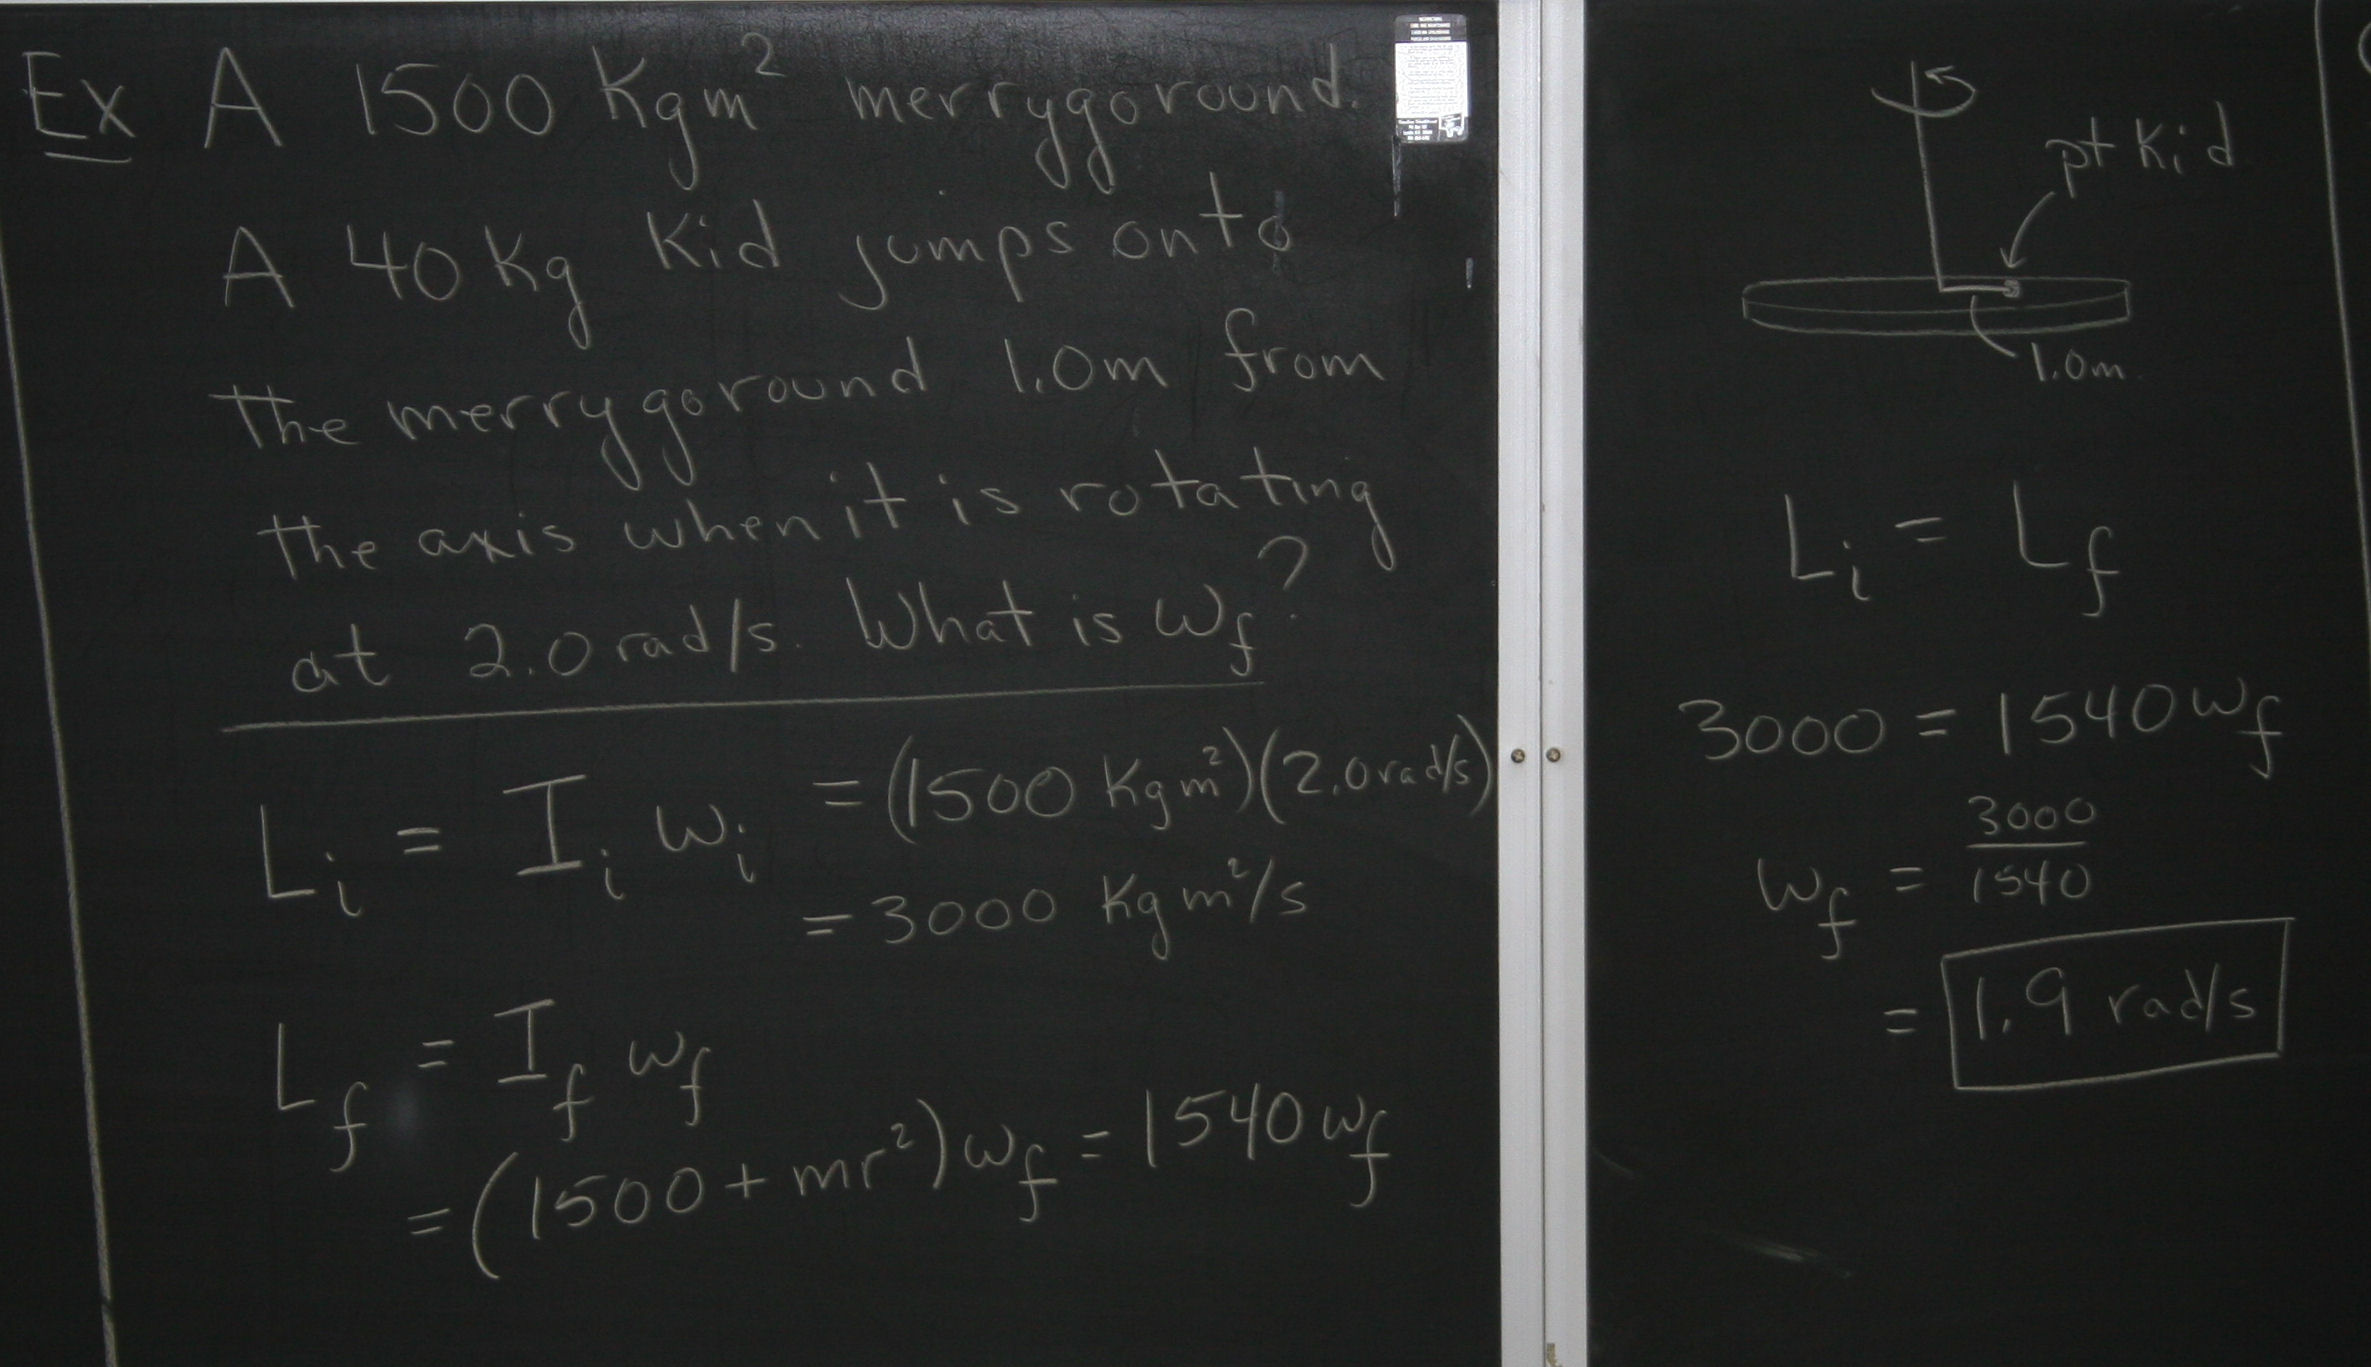 Ex A 1500 Kgm² merrygoround.
A 40 Kg Kid jumps onto
the merrygoround 1.0m from
the axis when it is rotating
at 2.0 rad/s. What is ωf?
Li = Ii ωi = (1500 Kgm²)(2.0 rad/s)
= 3000 Kgm²/s
Lf = If ωf
= (1500 + mr²)ωf = 1540 ωf
pt Kid
1.0m
Li = Lf
3000 = 1540 ωf
ωf = 3000/1540
= 1.9 rad/s